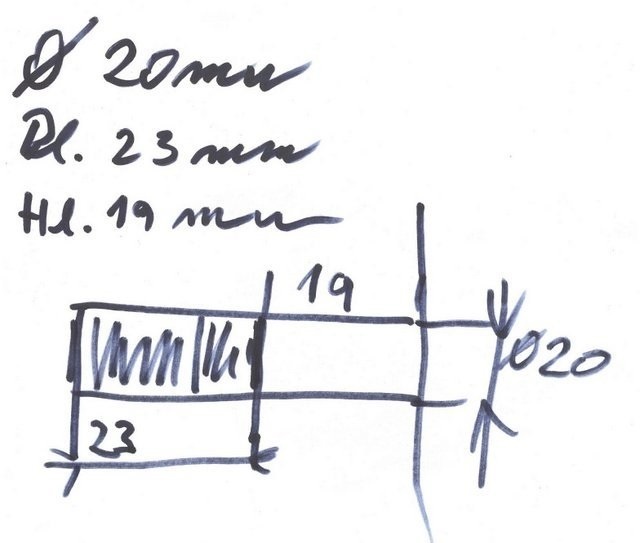 Ø 20mm
Bl. 23 mm
Hl. 19 mm
19
Ø20
23